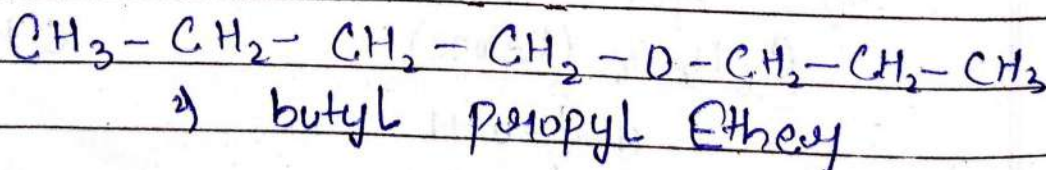 CH₃ - CH₂ - CH₂ - CH₂ - O - CH₂ - CH₂ - CH₃
2) butyl propyl Ether